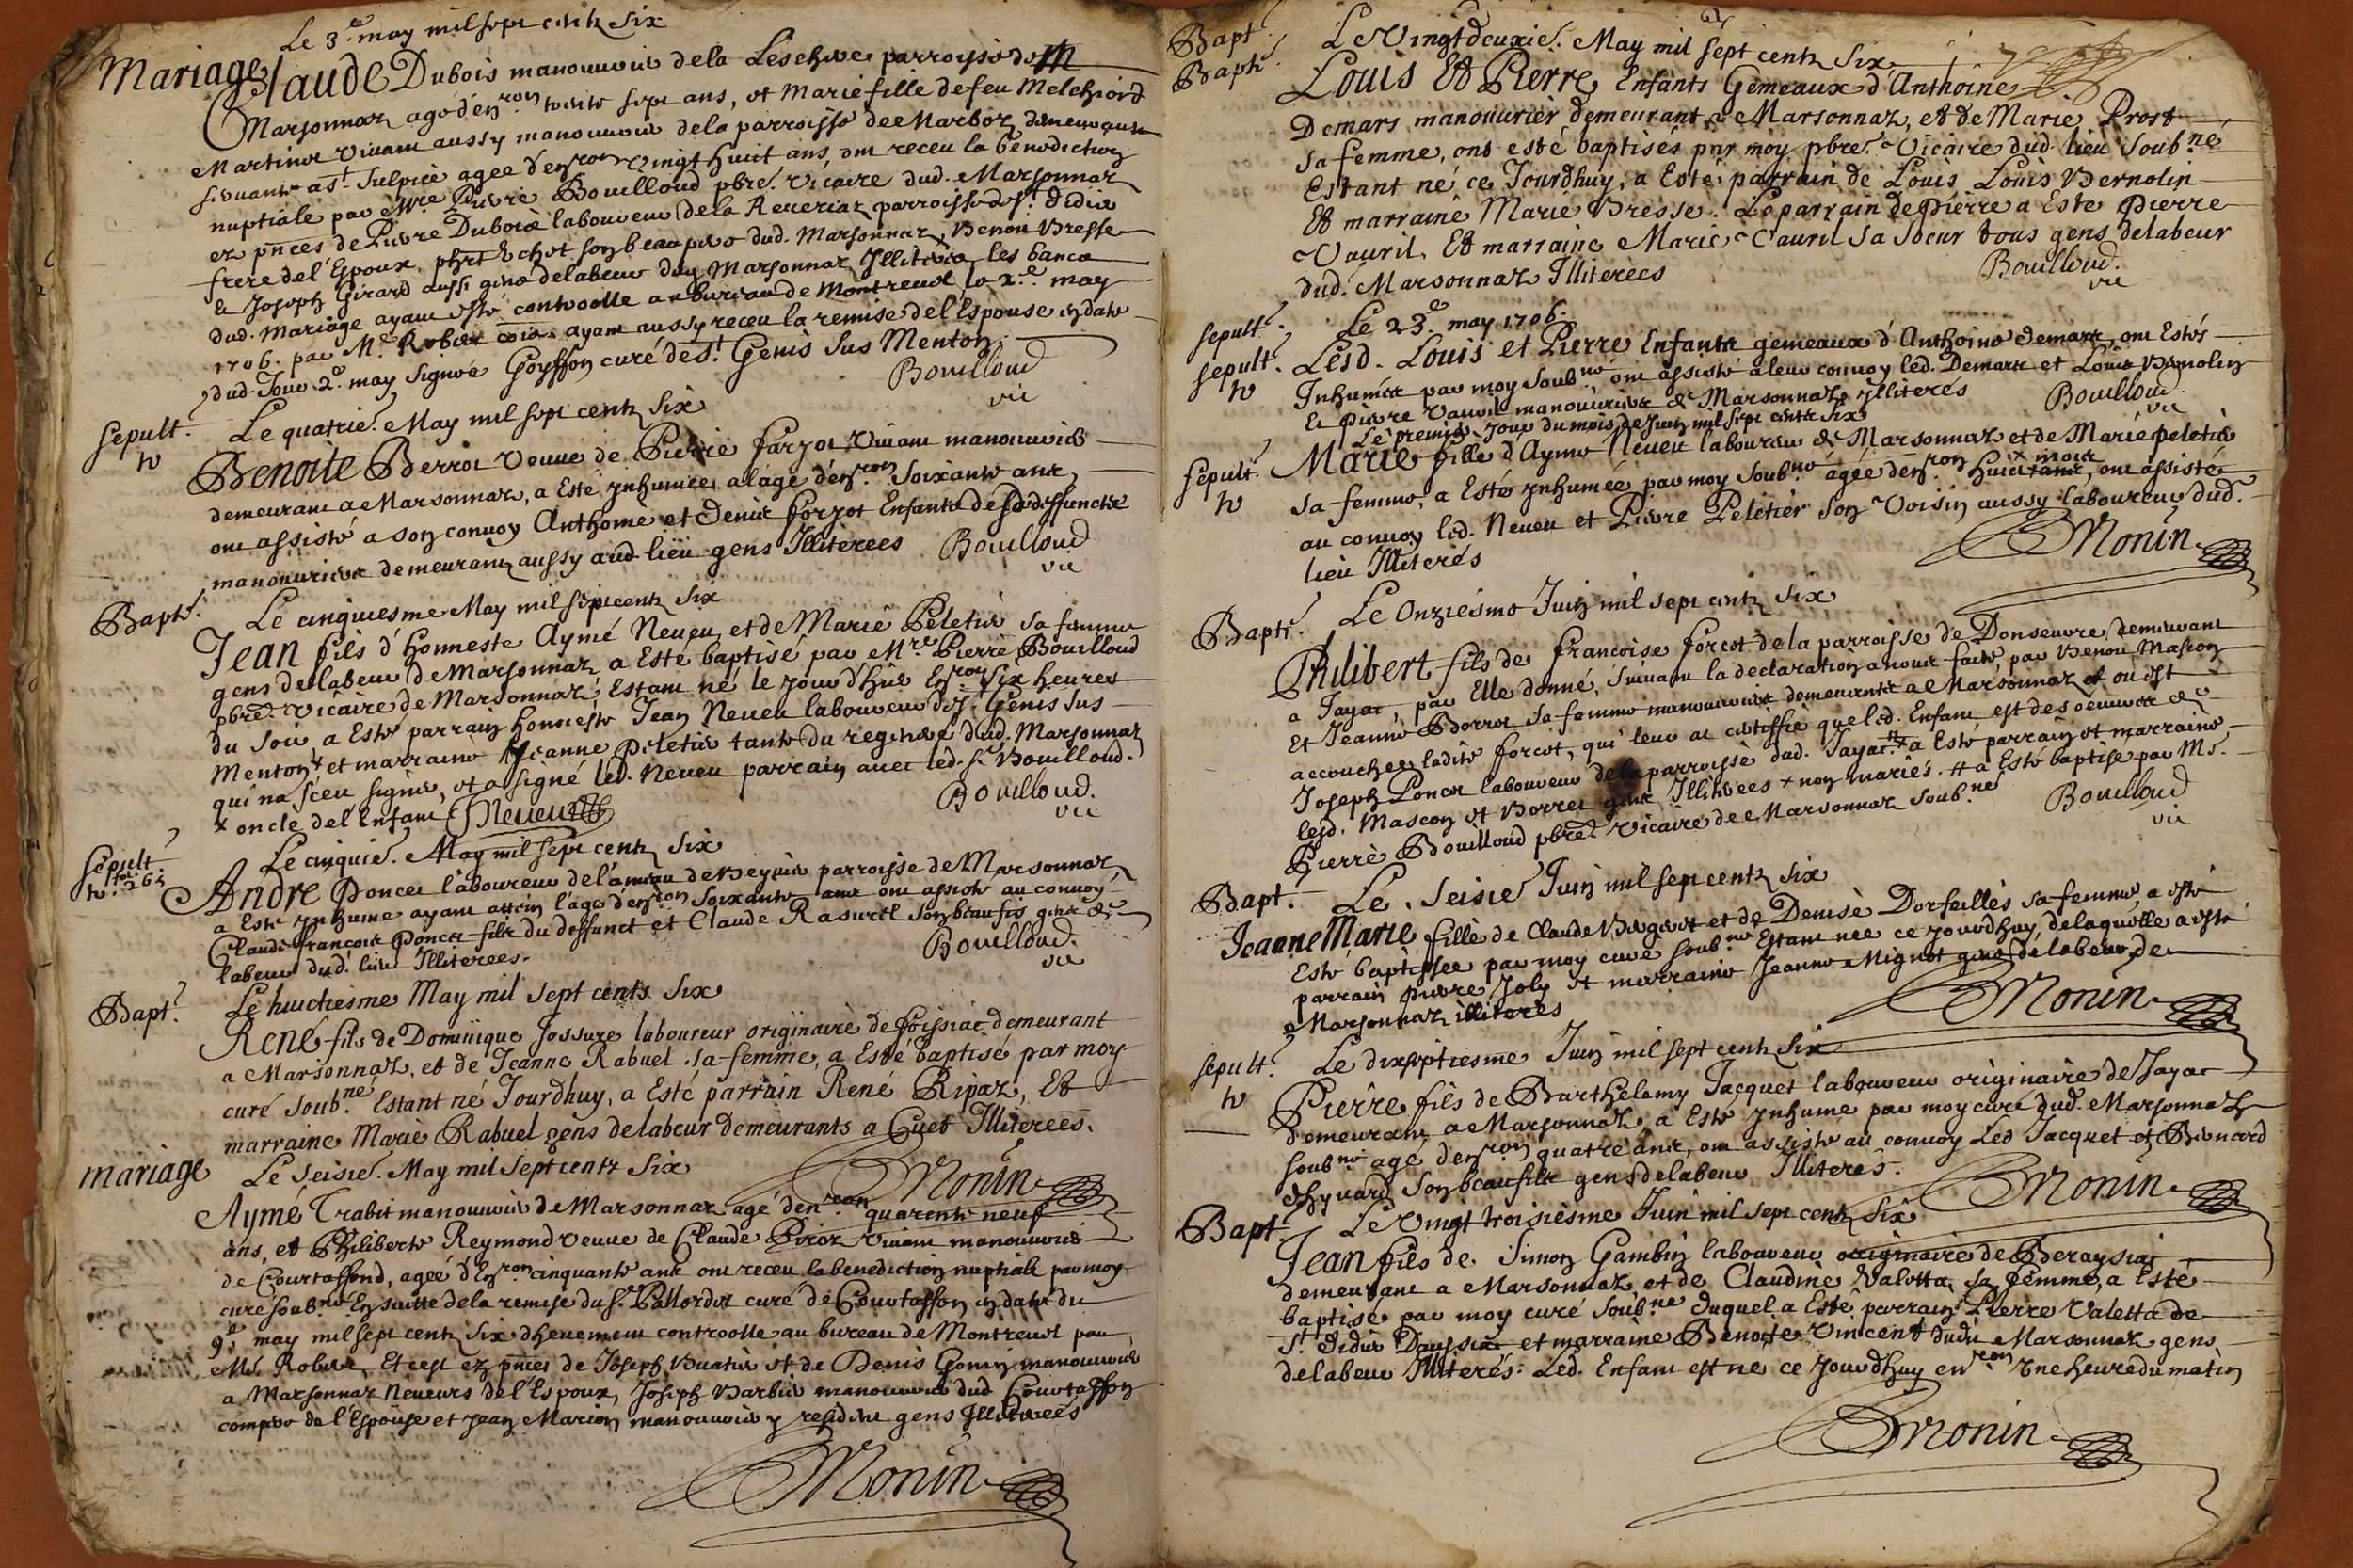 Le 3e may mil sept centz six
Mariage
Claude Dubois manouvrier de la Leschere parroisse de
Marsonnaz agé d'enron trente sept ans, et Marie fille de feu Melchiord
Martinet vivant aussy manouvrier de la parroisse de Marboz demeurante
servante a St Sulpice agee d'enron vingt huict ans, ont receu la benediction
nuptiale par Mre Pierre Bouilloud pbre. vicaire dud. Marsonnaz
ez pnces de Pierre Dubois laboureur de la Reveriaz parroisse de St. Didier
frere de l'Espoux, son beaupere dud. Marsonnaz, Benoit Bresse
& Joseph Girard aussi gens de labeur dud Marsonnaz Illiterés, les bancs
dud. Mariage ayant esté controolle au bureau de Montreuel le 2.e may
1706. par Mr. Robert ayant aussy receu la remise de l'Espouse en date
dud. Jour 2.e may signée Goyffon curé de St. Genis sus Menton.
Bouilloud
vic
Sepult.
Le quatrie. May mil sept centz six
Benoite Berrot veuve de Pierre forjot vivant manouvrier
demeurant a Marsonnaz, a Esté Inhumee, a lage d'enron. soixante ans,
ont assisté a son convoy Anthoine et Denis forjot Enfants de sa deffuncte
manouvriers demeurantz aussy aud. lieu gens Illiterees
Bouilloud
vic
Bapte.
Le cinquiesme May mil sept centz six
Jean fils d'honneste Aymé Neveu, et de Marie Peletier sa femme
gens de labeur de Marsonnaz a Esté baptisé par Mre Pierre Bouilloud
pbre. vicaire de Marsonnaz, Estant né le jour d'huë Enron. six heures
du soir, a Esté parrain honneste Jean Neveu laboureur de St. Genis sus
Menton + et marraine Jeanne Peletier tante du regeneré dud. Marsonnaz
qui na sceu signer, et a signé led. Neveu parrain avec led. sr. Bouilloud.
+ oncle de l'Enfant Neveu
Bouilloud.
vic
Sepult
Le cinquie. May mil sept centz six
André Poncet laboureur de l'ameau de Veyria parroisse de Marsonnaz
a Esté Inhumé ayant atteint l'age d'enron soixante ans ont assisté au convoy
Claude francois Poncet fils du deffunct et Claude Rasurel son beaufils gens de
labeur dud. lieu Illiterees.
Bouilloud.
vic
Bapt.
Le huictiesme May mil sept cents six
René fils de Dominique Jossure laboureur originaire de foissiac demeurant
a Marsonnaz, et de Jeanne Rabuel sa femme, a Esté baptisé par moy
curé soub.né Estant né Jourdhuy, a Esté parrain René Ripaz, Et
marraine Marie Rabuel gens de labeur demeurants a Cuet Illiterees.
Monin
mariage
Le Seisie. May mil sept centz six
Aymé Trabit manouvrier de Marsonnaz agé d'enron quarente neuf
ans, et Philiberte Reymond veuve de Claude Piroz vivant manouvrier
de Courtaffond, agée d'Enron cinquante ans ont receu la benediction nuptiale par moy
curé soub.né Ensuitte de la remise du sr. curé de Courtaffon en date du
9e. may mil sept centz six dhenement controolle au bureau de Montreuel par
Mr. Robert, Et cest ez pnces de Joseph Buatier et de Denis Gonin manouvriers
a Marsonnaz Neveurs de l'Espoux, Joseph Barbier manouvrier dud Courtaffon
compere de l'Espouse et Jean Marion manouvrier y resident gens Illiterees
Monin
Bapt.
Bapte
Le Vingt deuxie. May mil sept centz six
Louis Et Pierre Enfants Gemeaux d'Anthoine
Demars manouurier demeurant a Marsonnaz, et de Marie Prost
sa femme, ont esté baptisés par moy pbre. Vicaire dud. lieu soub.né
Estant né ce Jourdhuy, a Esté parrain de Louis Louis Vernolin
Et marraine Marie Bresse. Le parrain de Pierre a Este Pierre
Vauril, Et marraine Marie Vauril sa soeur tous gens de labeur
dud. Marsonnaz Illiterees
Bouilloud.
vic
Sepult.
Sepult.
Le 23e. may 1706.
Lesd. Louis et Pierre Enfants gemeaux d'Anthoine Demars, ont Estés
Inhumés par moy soub.né ont assisté a leur convoy led. Demars et Louis Vernolin
& Pierre Vauril manouvriers de Marsonnaz Illiteres
Bouilloud
vic
Le premier Jour du mois de Juin mil sept centz six
Sepult.
Marie fille d'Aymo Neveu laboureur de Marsonnaz et de Marie peletier
sa femme, a Esté Inhumée par moy soub.né agée d'enron huict x mois, ont assisté
au convoy led. Neveu et Pierre Peletier son voisin aussy laboureur dud.
lieu Illiterés
Monin
Bapte.
Le Onziesme Juin mil sept centz six
Philibert fils de francoise forcot de la parroisse de Donseurre, demeurant
a Jayac, par Elle donné, suivant la declaration a nous faite, par Benoit Mascon
Et Jeanne Borrot sa femme manouvriers demeurants a Marsonnaz et ou est
accouchee ladite forcot, qui leur a certiffié que led. Enfant est des oeuvres de
Joseph Poncet laboureur de la parroisse dud. Jayac. # a Esté parrain et marraine
lesd. Mascon et Borrot gens Illiterees + non mariés. # a Esté baptisé par Mr.
Pierre Bouilloud pbre. vicaire de Marsonnaz soub.né
Bouilloud
vic
Bapt.
Le Seisie Juin mil sept centz six
Jeanne Marie fille de Claude et de Denise Dorfeilles sa femme, a esté
Esté baptisee par moy curé soub.né Estant nee ce jourdhuy, de laquelle a esté
parrain Pierre Joly et marraine Jeanne Mignot gens de labeur de
Marsonnaz illiterés
Monin
Sepult.
Le dixseptiesme Juin mil sept centz six
Pierre fils de Barthelemy Jacquet laboureur originaire de Jayac
demeurant a Marsonnaz, a Esté Inhumé par moy curé dud. Marsonnaz
soub.né agé d'enron quatre ans, ont assisté au convoy Led Jacquet et Bernard
son beaufils gens de labeur Illiterés.
Monin
Bapt.
Le Vingt troisiesme Juin mil sept centz six
Jean fils de Simon Gambin laboureur originaire de Beraysiat
demeurant a Marsonnaz, et de Claudine Valetta, sa femme, a Esté
baptisé par moy curé soub.né Duquel a Esté parrain Pierre Valetta de
St. Didier Daussiat et marraine Benoite Vincent dudit Marsonnaz gens
de labeur Illiterés. Led. Enfant est né ce jourdhuy enron une heure du matin
Monin